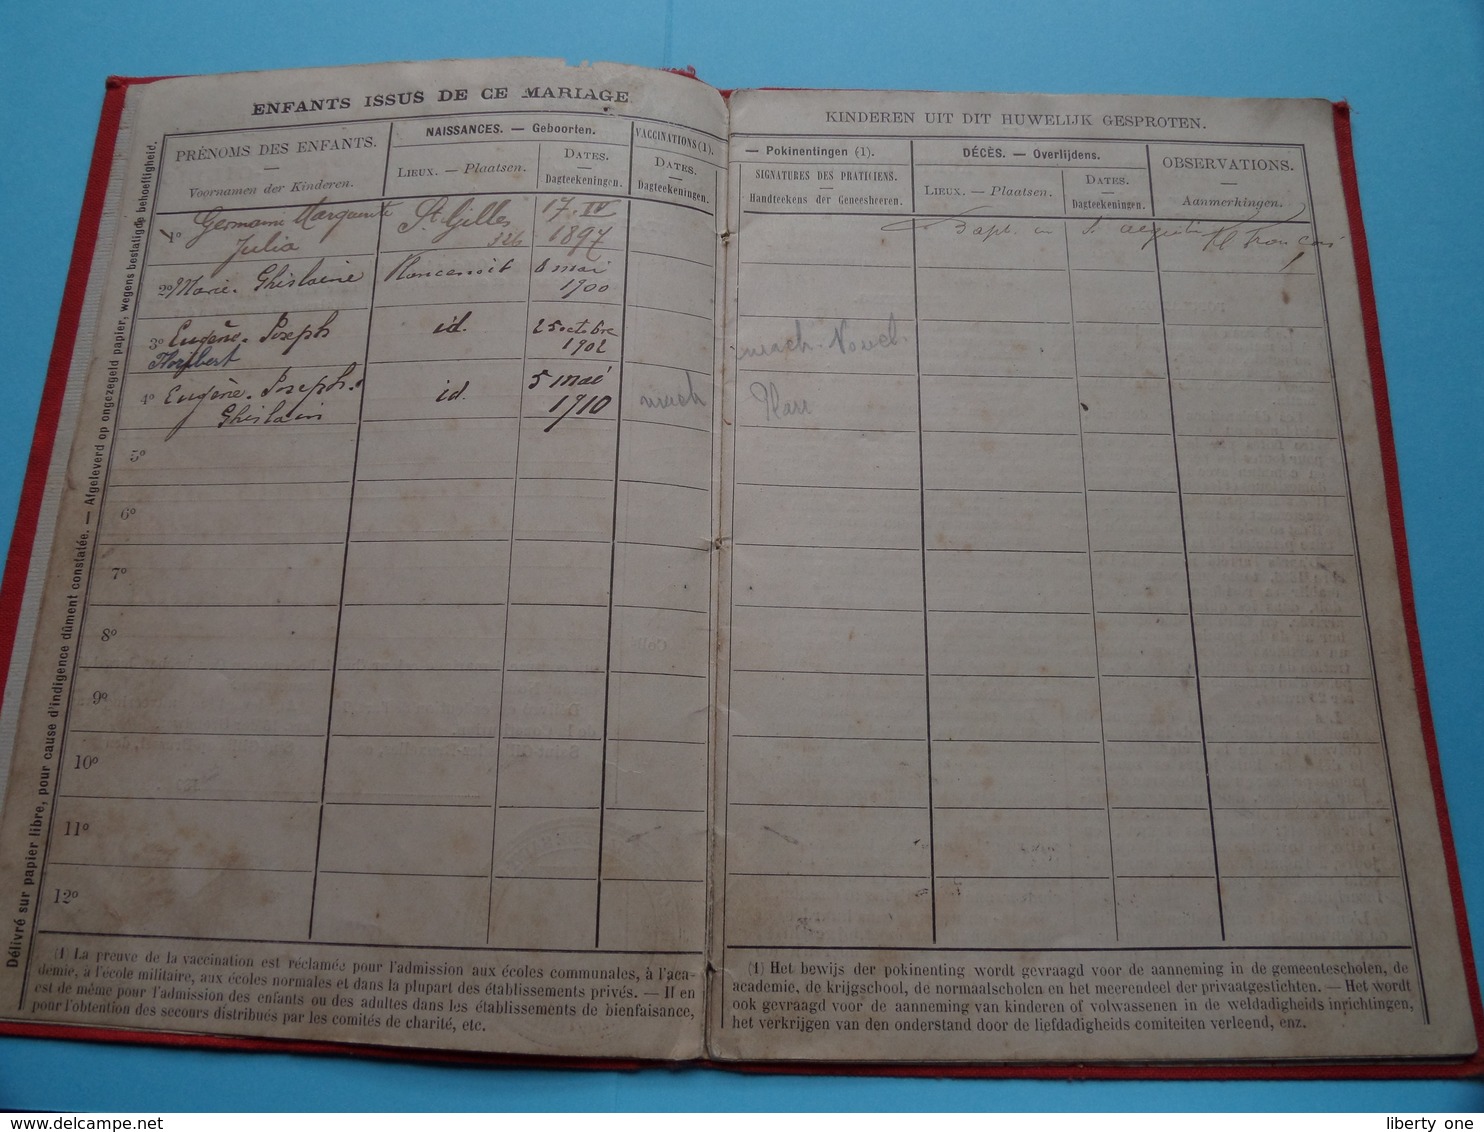 ENFANTS ISSUS DE CE MARIAGE
PRÉNOMS DES ENFANTS.
Voornamen der Kinderen.
NAISSANCES. — Geboorten.
LIEUX. — Plaatsen.
DATES.
Dagteekeningen.
VACCINATIONS (1).
DATES.
Dagteekeningen.
1º Germaine Marguerite St Gilles 17. IV
Julia 326 1897
2º Marie. Ghislaine Plancenoit 6 mai
1900
3º Eugène. Joseph id. 25 octobre
Norbert 1902
4º Eugène. Joseph. id. 5 mai
Ghislain 1910
5º
6º
7º
8º
9º
10º
11º
12º
(1) La preuve de la vaccination est réclamée pour l'admission aux écoles communales, à l'aca-
démie, à l'école militaire, aux écoles normales et dans la plupart des établissements privés. — Il en
est de même pour l'admission des enfants ou des adultes dans les établissements de bienfaisance,
pour l'obtention des secours distribués par les comités de charité, etc.
Délivré sur papier libre, pour cause d'indigence dûment constatée. — Afgeleverd op ongezegeld papier, wegens bestatigde behoeftigheid.
KINDEREN UIT DIT HUWELIJK GESPROTEN.
— Pokinentingen (1).
SIGNATURES DES PRATICIENS.
Handteekens der Geneesheeren.
DÉCÈS. — Overlijdens.
LIEUX. — Plaatsen.
DATES.
Dagteekeningen.
OBSERVATIONS.
Aanmerkingen.
(1) Het bewijs der pokinenting wordt gevraagd voor de aanneming in de gemeentescholen, de
academie, de krijgschool, de normaalscholen en het meerendeel der privaatgestichten. — Het wordt
ook gevraagd voor de aanneming van kinderen of volwassenen in de weldadigheids inrichtingen,
het verkrijgen van den onderstand door de liefdadigheids comiteiten verleend, enz.
liberty one